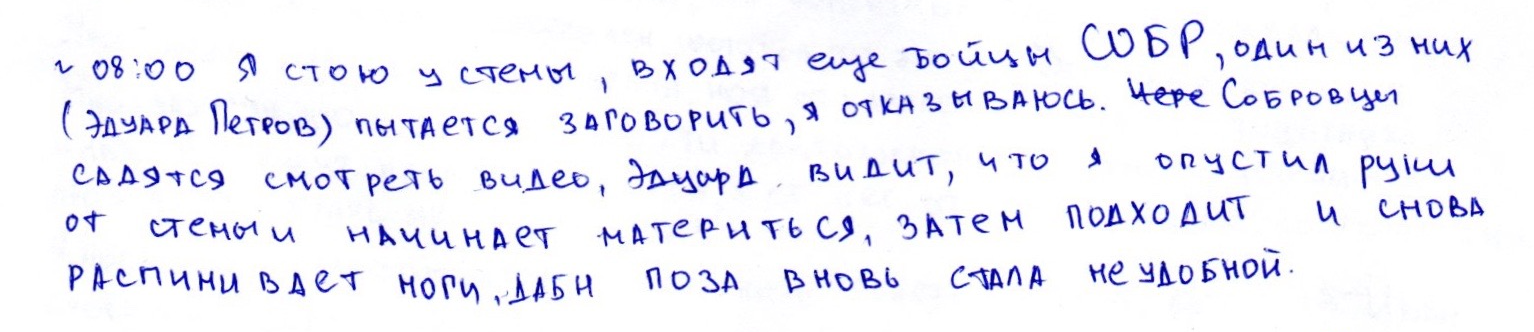 ~ 08:00 Я стою у стены, входят еще бойцы СОБР, один из них
(Эдуард Петров) пытается заговорить, я отказываюсь. Чере Собровцы
садятся смотреть видео, Эдуард видит, что я опустил руки
от стены и начинает материться, затем подходит и снова
распинивает ноги, дабы поза вновь стала неудобной.